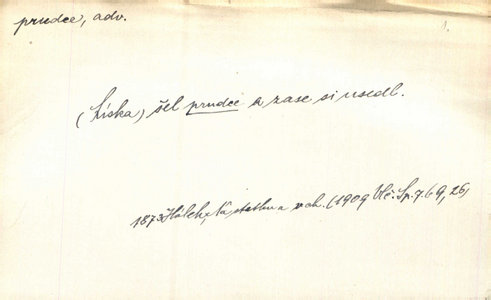 prudce, adv.
1.
(Líska) šel prudce a zase si usedl.
1873 Hálek, Na statku a v ch. (1909 Vlč. Sp. 7. 69, 26)